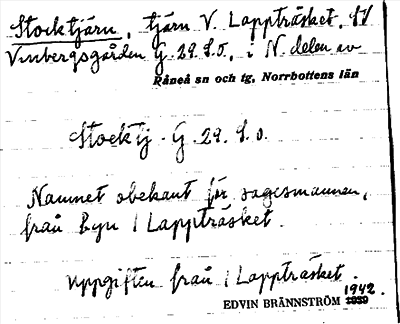 Stocktjärn, tjärn V. Lappträsket, SV
Vinbergsgården G. 29. 8. 0., i N. delen av
Råneå sn och tg, Norrbottens län
Stocktj - G. 29. 8. 0.
Namnet obekant för sagesmannen,
från byn i Lappträsket.
Uppgiften från i Lappträsket.
1942.
EDVIN BRÄNNSTRÖM 1939